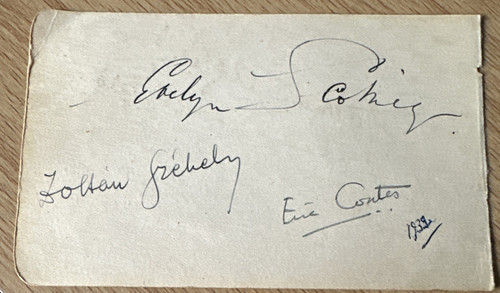 Evelyn Scotney
Zoltán Székely
Eric Coates
1939